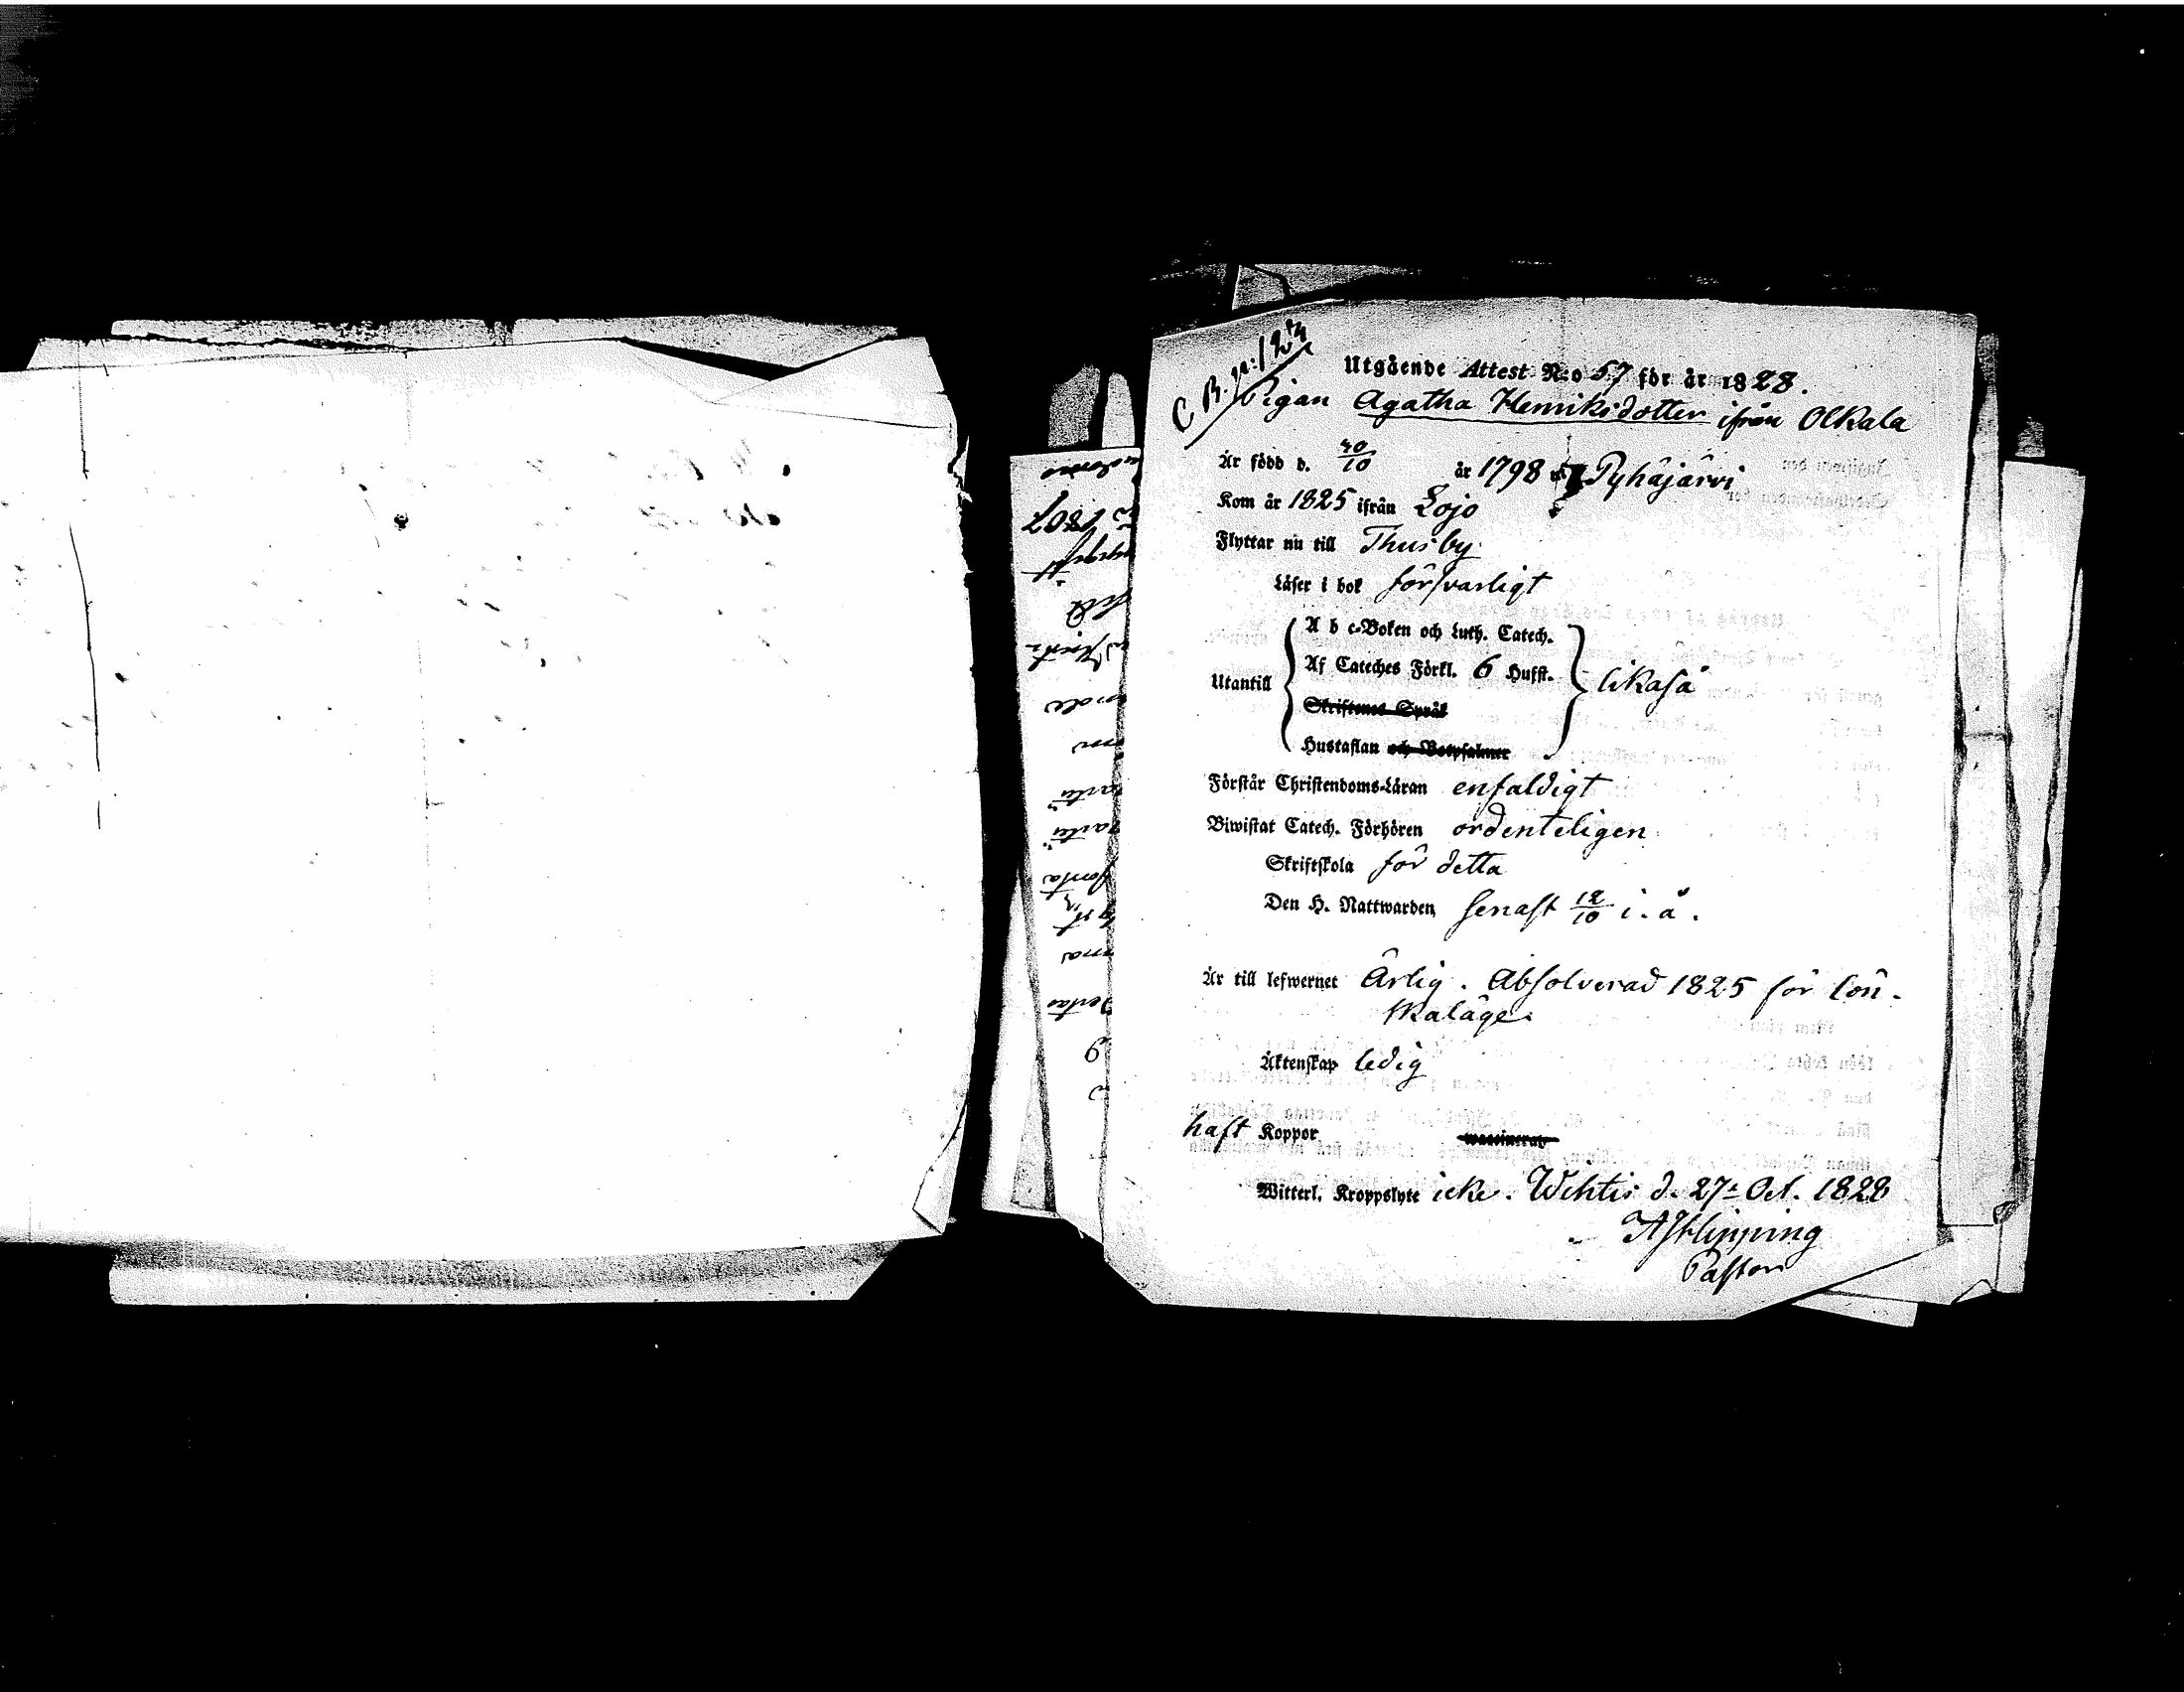 Utgående Attest N:o 57 för år 1828.
Pigan Agatha Henriksdotter ifrån Olkala
Är född d. år 1798 i Pyhäjärvi
Kom år 1825 ifrån Lojo
Flyttar nu till Thusby
Läser i bok försvarligt
A b c-Boken och Luth. Catech.
Af Cateches Förkl. 6 Hufst.
Utantill likaså
Skriftenes Språk
Hustaflan och Botpsalmer
Förstår Christendoms-Läran enfaldigt
Biwistat Catech. Förhören ordenteligen
Skriftskola för detta
Den H. Nattwarden senast 12/10 i. å.
Är till lefwernet Ärlig. Absolverad 1825 för lön-
skaläge.
Äktenskap ledig
haft Koppor waccinerad
Witterl. Kroppslyte icke. Wihtis d. 27 Oct. 1828
Pastor